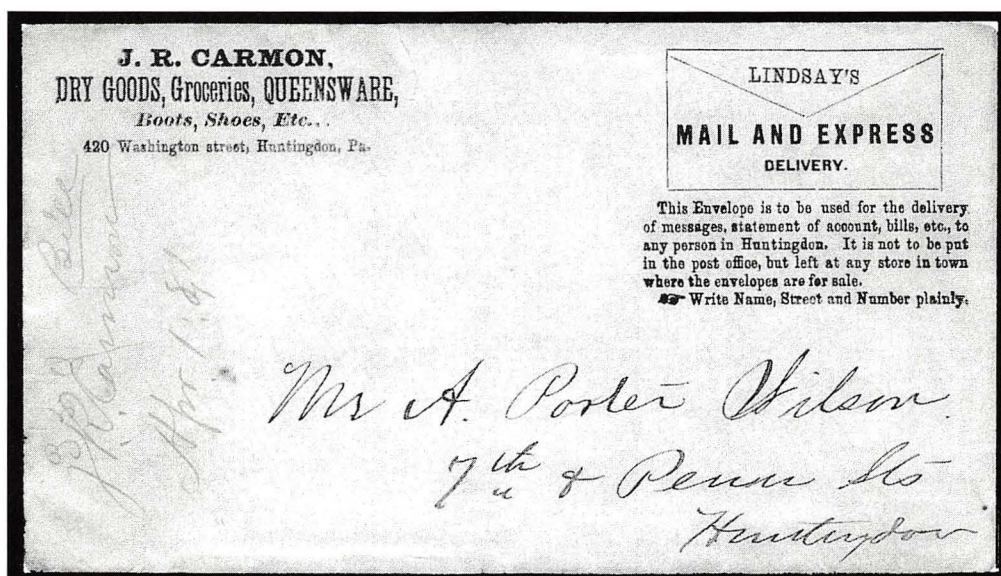 J. R. CARMON,
DRY GOODS, Groceries, QUEENSWARE,
Boots, Shoes, Etc..
420 Washington street, Huntingdon, Pa.
LINDSAY'S
MAIL AND EXPRESS
DELIVERY.
This Envelope is to be used for the delivery
of messages, statement of account, bills, etc., to
any person in Huntingdon. It is not to be put
in the post office, but left at any store in town
where the envelopes are for sale.
☞ Write Name, Street and Number plainly.
Bill
J. R. Carmon
Apr 1. 81
Mr A. Porter Wilson.
7th & Penn Sts
Huntingdon